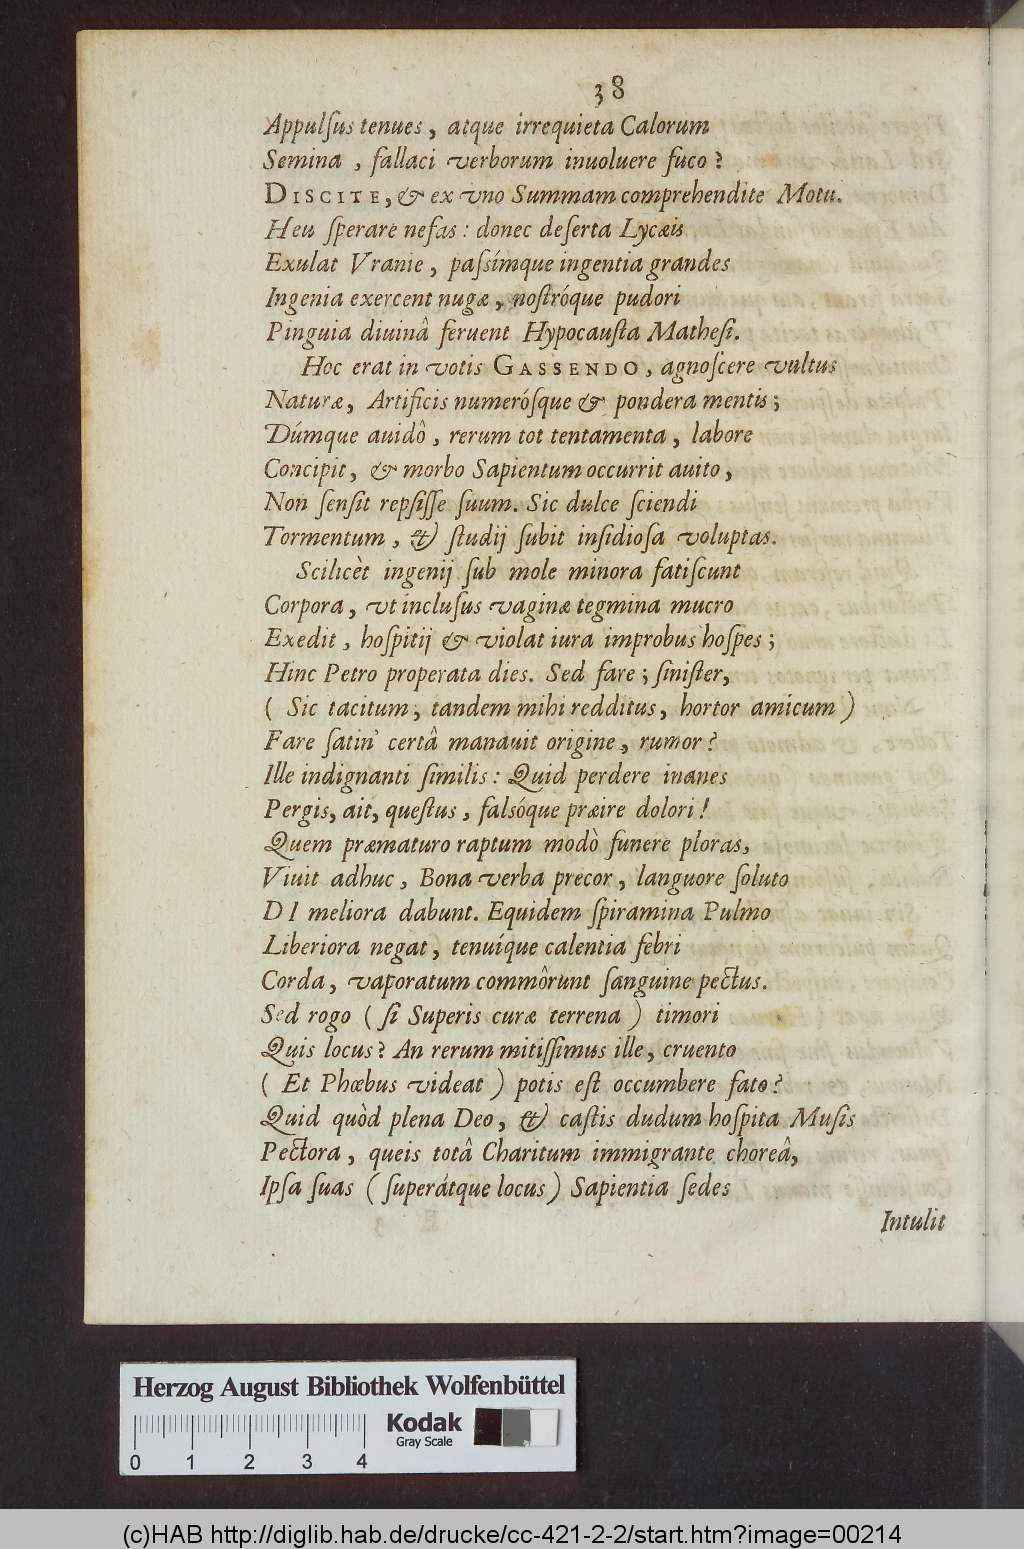 38
Appulſus tenues, atque irrequieta Calorum
Semina, fallaci verborum inuoluere fuco?
DISCITE, & ex vno Summam comprehendite Motu.
Heu ſperare nefas: donec deſerta Lycæis
Exulat Vranie, paſsímque ingentia grandes
Ingenia exercent nugæ, noſtróque pudori
Pinguia diuinâ feruent Hypocauſta Matheſi.
Hoc erat in votis GASSENDO, agnoſcere vultus
Naturæ, Artificis numeróſque & pondera mentis;
Dúmque auidô, rerum tot tentamenta, labore
Concipit, & morbo Sapientum occurrit auito,
Non ſenſit repſiſſe ſuum. Sic dulce ſciendi
Tormentum, & ſtudij ſubit inſidioſa voluptas.
Scilicèt ingenij ſub mole minora fatiſcunt
Corpora, vt incluſus vaginæ tegmina mucro
Exedit, hoſpitij & violat iura improbus hoſpes;
Hinc Petro properata dies. Sed fare; ſiniſter,
( Sic tacitum, tandem mihi redditus, hortor amicum )
Fare ſatin' certâ manauit origine, rumor?
Ille indignanti ſimilis: Quid perdere inanes
Pergis, ait, queſtus, falsóque præire dolori!
Quem præmaturo raptum modò funere ploras,
Viuit adhuc, Bona verba precor, languore ſoluto
DI meliora dabunt. Equidem ſpiramina Pulmo
Liberiora negat, tenuíque calentia febri
Corda, vaporatum commôrunt ſanguine pectus.
Sed rogo ( ſi Superis curæ terrena ) timori
Quis locus? An rerum mitiſſimus ille, cruento
( Et Phœbus videat ) potis eſt occumbere fato?
Quid quòd plena Deo, & caſtis dudum hoſpita Muſis
Pectora, queis totâ Charitum immigrante choreâ,
Ipſa ſuas ( ſuperátque locus ) Sapientia ſedes
Intulit
Herzog August Bibliothek Wolfenbüttel
Kodak
Gray Scale
0 1 2 3 4
(c)HAB http://diglib.hab.de/drucke/cc-421-2-2/start.htm?image=00214